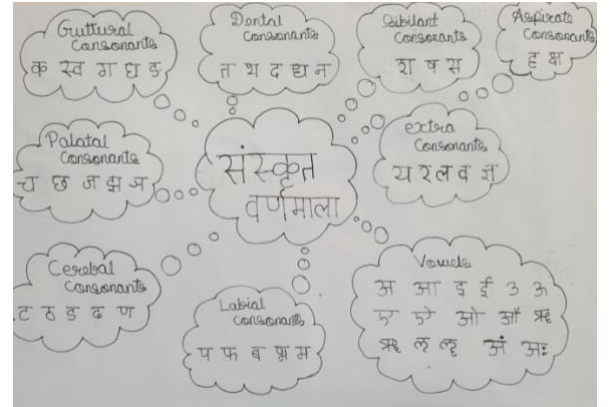 Guttural
Consonants
क ख ग घ ङ
Dental
Consonants
त थ द ध न
Sibilant
Consonants
श ष स
Aspirate
Consonants
ह क्ष
Palatal
Consonants
च छ ज झ ञ
संस्कृत
वर्णमाला
extra
Consonants
य र ल व ज्ञ
Cerebal
Consonants
ट ठ ड ढ ण
Labial
Consonants
प फ ब भ म
Vowels
अ आ इ ई उ ऊ
ए ऐ ओ औ ऋ
ॠ ऌ ॡ अं अः